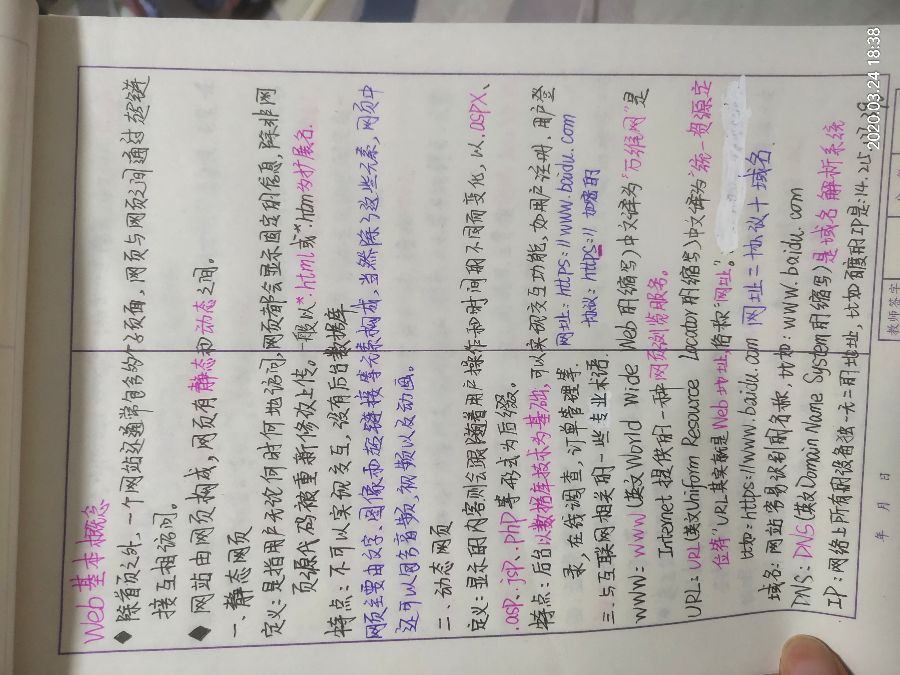 Web基本概念
◆ 除首页之外,一个网站还通常包含多个子页面,网页与网页之间通过超链
接互相访问。
◆ 网站由网页构成,网页有静态和动态之间。
一、静态网页
定义:是指用户无论何时何地访问,网页都会显示固定的信息,除非网
页源代码被重新修改上传。一般以*.html或*.htm为扩展名.
特点:不可以实现交互,没有后台数据库
网页主要由文字、图像和超链接等元素构成,当然除了这些元素,网页中
还可以包含音频,视频以及动画。
二、动态网页
定义:显示的内容则会跟随着用户操作和时间的不同而变化,以.aspx、
.asp、.jsp、.php等形式为后缀。
特点:后台以数据库技术为基础,可以实现交互功能,如用户注册、用户登
录,在线调查,订单管理等.
网址:https://www.baidu.com
三、与互联网相关的一些专业术语.
协议:https:// 加密的
WWW:WWW(英文World Wide Web的缩写)中文译为"万维网"是
Internet提供的一种网页浏览服务。
URL:URL(英文Uniform Resource Locator的缩写)中文译为"统一资源定
位符"URL其实就是Web地址,俗称"网址"。
比如:https://www.baidu.com 网址=协议+域名.
域名:网站容易识别的名称,比如:www.baidu.com
DNS:DNS(英文Domain Name System的缩写)是域名解析系统
IP:网络上所有的设备独一无二的地址,比如百度的IP是:14.215.
年 月 日
教师签字
2020.03.24 18:38